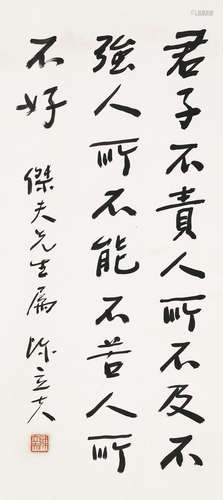 君子不責人所不及不
強人所不能不苦人所
不好
傑夫先生屬 陳立夫